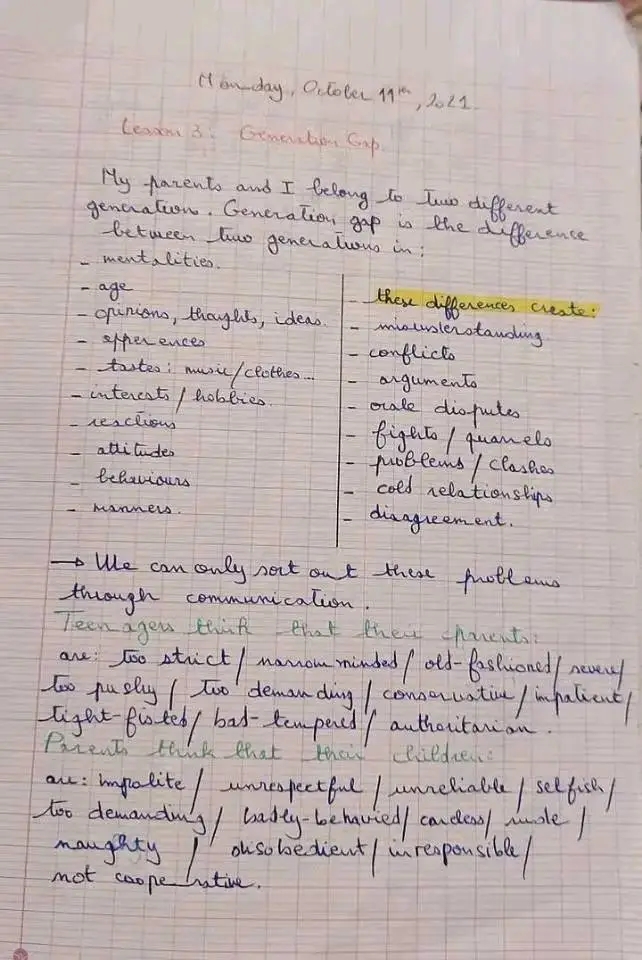 Monday, October 11th, 2021.
Lesson 3: Generation Gap
My parents and I belong to two different
generation. Generation gap is the difference
between two generations in:
- mentalities.
- age
- opinions, thoughts, ideas.
- apperences
- tastes: music/clothes...
- interests / hobbies.
- reactions
- attitudes
- behaviours
- manners.
- these differences create:
- misunderstanding.
- conflicts
- arguments
- orale disputes
- fights / quarrels
- problems / clashes
- cold relationships
- disagreement.
→ We can only sort out these problems
through communication.
Teenagers think that their parents:
are: too strict / narrow minded / old-fashioned / severe/
too pushy / too demanding / conservative / impatient/
tight-fisted / bad-tempered / authoritarian.
Parents think that their children:
are: impolite / unrespectful / unreliable / selfish/
too demanding / badly-behavied / careless / rude /
naughty / disobedient / irresponsible /
not cooperative.